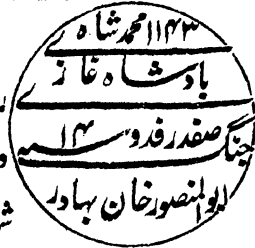 ۱۱۴۳ محمد شاہی
بادشاہ غازی
صفدر فدوی ۱۴ سنہ
جنگ
ابوالمنصور خان بہادر